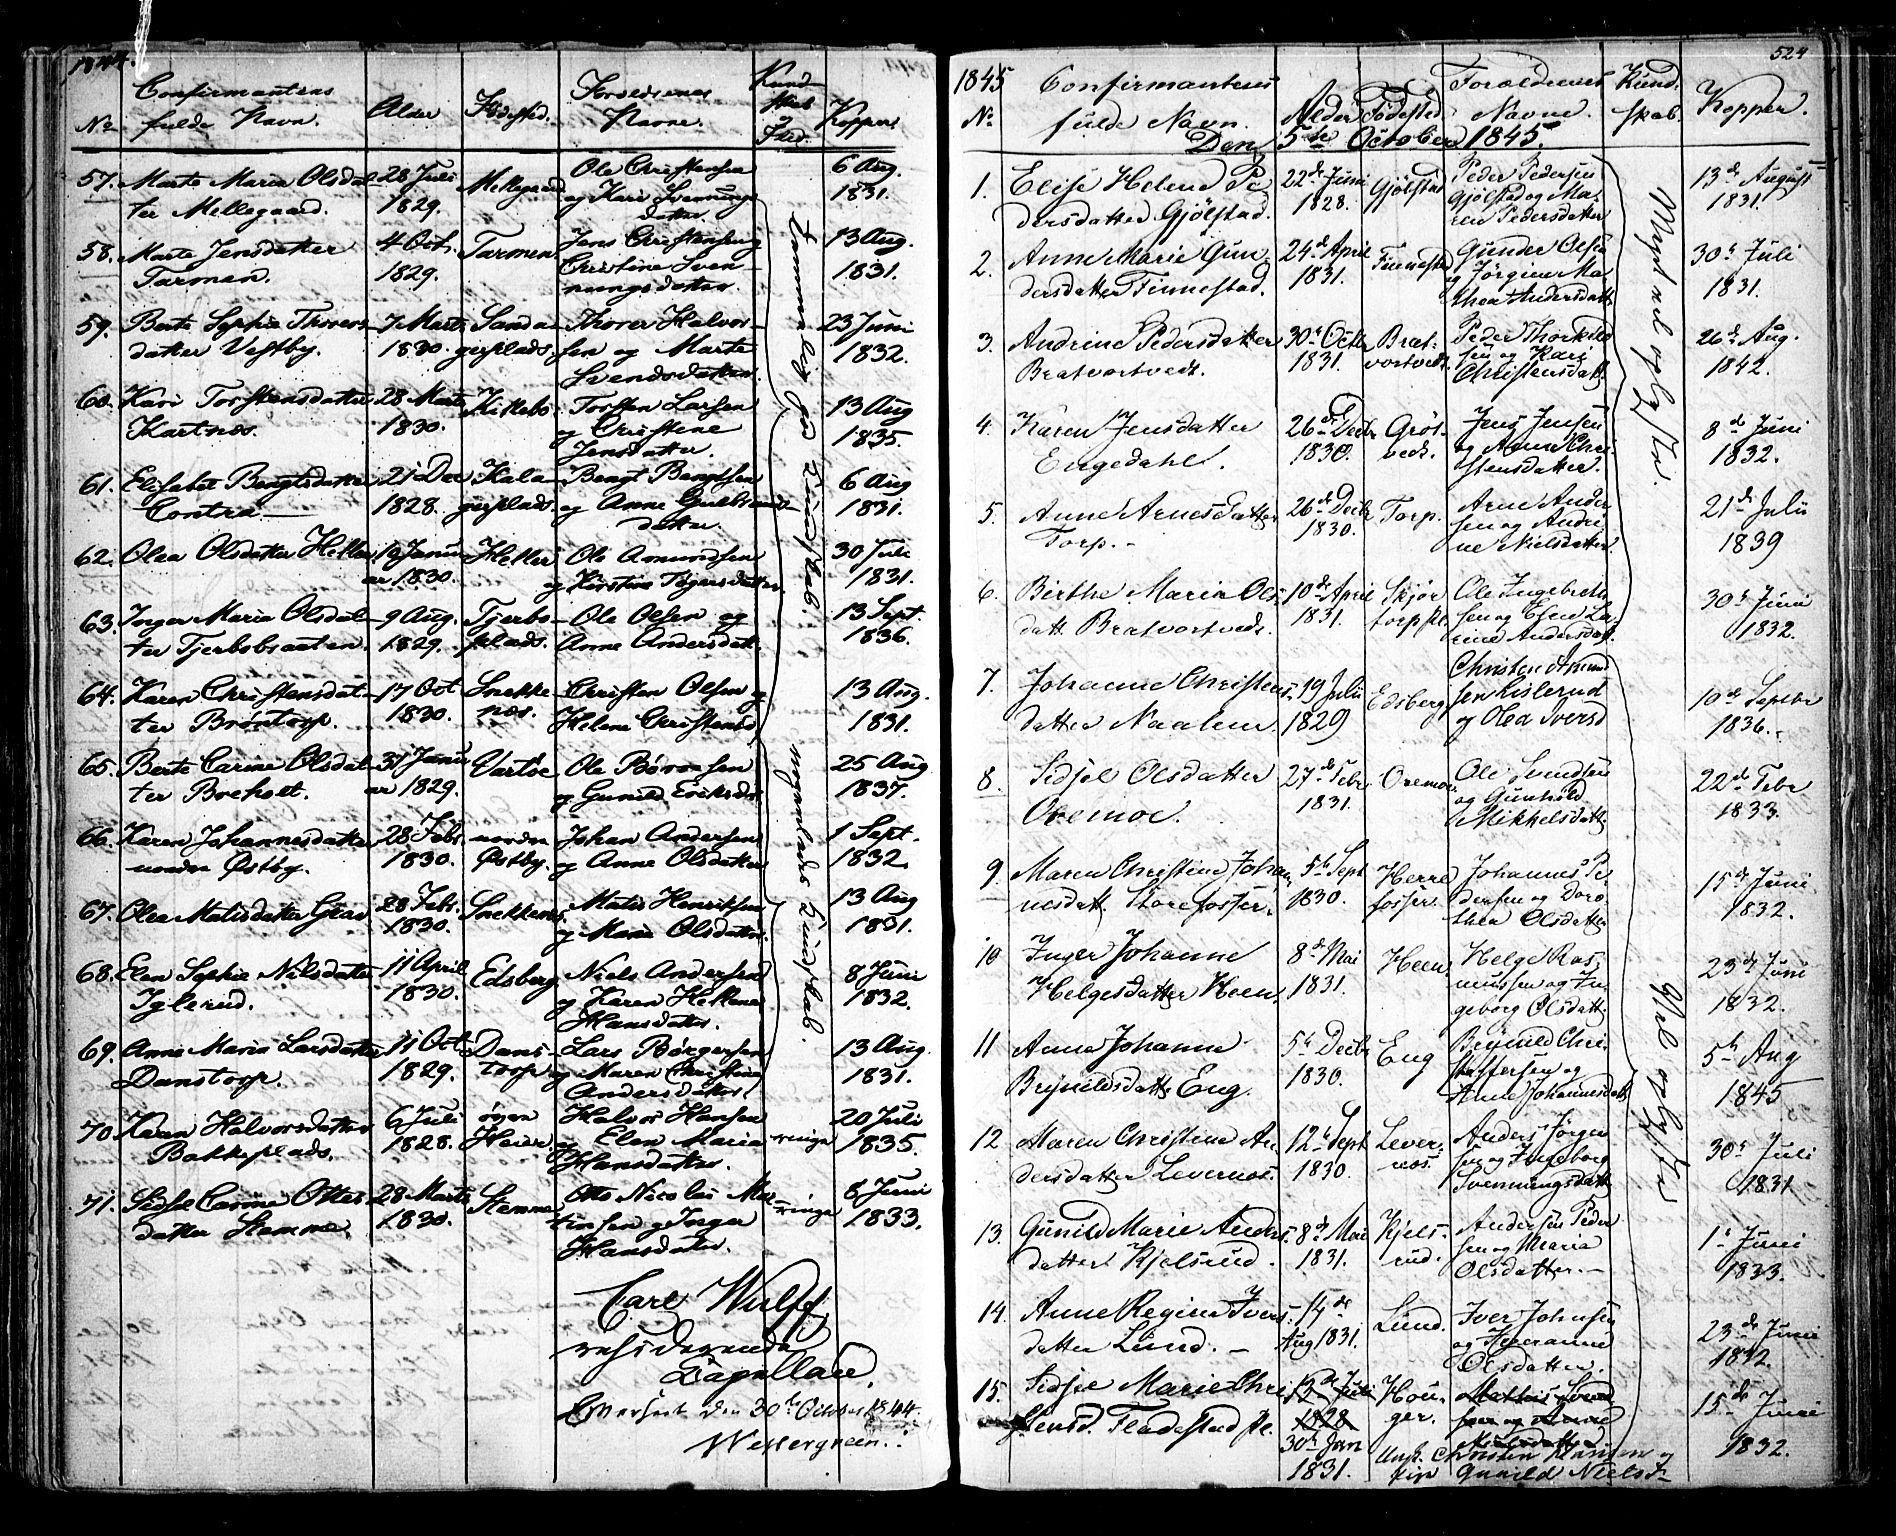 1844.
Confirmantens
fulde Navn.
No
Alder
Fødested.
Forældrenes
Navne.
Kund-
skab
Flid.
Kopper
57. Marte Maria Olsdat-
ter Mellegaard.
28 Juli
1829.
Mellegaard
Ole Christensen
og Kari Svennungs
datter.
6 Aug.
1831.
58. Marte Jensdatter
Tarmen.
4 Oct.
1829.
Tarmen.
Jens Christensen og
Christine Sven-
nungsdatter.
13 Aug.
1831.
59. Berte Sophie Thorers-
datter Vestby.
7 Marts
1830.
Thorer Halvor-
sen og Marte
Svendsdatter.
23 Juni
1832.
60. Kari Torstensdatter
Kartnes.
28 Marts
1830.
Kikkebo
Torsten Larsen
og Christine
Jensdatter.
13 Aug
1835.
61. Elisabet Bengtsdatter
Contra.
21 Dec
1828.
Bengt Bengtsen
og Anne Gulbrands-
datter.
6 Aug
1831.
62. Olea Olsdatter Heller
19 Janu
ar 1830.
Heller
Ole Amundsen
og Kirstine Tøgersdatter
30 Juli
1831.
63. Inger Maria Olsdat-
ter Tjerbobraaten.
9 Aug.
1829.
Tjerbo-
plads.
Ole Olsen og
Anne Andersdatt.
13 Sept.
1836.
64. Karen Christensdat-
ter Brøntorp.
17 Oct
1830.
Snekke
næs.
Christen Olsen og
Helene Christensd
13 Aug.
1831.
65. Berte Carine Olsdat-
ter Boeholt.
31 Janu
ar 1829.
Vartøe
Ole Børresen
og Gunild Eriksdr.
25 Aug
1837.
66. Karen Johannesdatter
nordre Østby.
28 Febr.
1830.
nordre
Østby.
Johan Andersen
og Anne Olsdatter
1 Sept.
1832.
67. Olea Matisdatter Grav
28 Febr.
1830.
Snekkenes
Matis Henriksen
og Maria Olsdatter.
13 Aug
1831.
68. Elen Sophie Nilsdatter
Iglerud.
11 April
1830.
Edsberg
Niels Andersen
og Karen Helene
Hansdatter.
8 Juni
1832.
69. Anne Maria Larsdatter
Danstorp.
11 Oct
1829.
Dans-
torp
Lars Børgersen
og Maren Christine
Andersdatter.
13 Aug.
1831.
70. Karen Halvorsdatter
Bakkeplads.
6 Juli
1828.
Heier
Halvor Hansen
og Elen Maria
Hansdatter.
ringe
20 Juli
1835.
71. Sidse Carine Ottes-
datter Stemme.
28 Marts
1830.
Stemme
Otto Nicolai Mar
tinsen og Inger
Hansdatter.
ringe
8 Juni
1833.
temmelig god Kundskab
nogenlunde Kundskab.
Carl Wulff
residerende
Capellan.
Efterseet den 30te October 1844.
Westergreen.
524
1845
No
Confirmantens
fulde Navn.
Alder
Fødested
Forældrenes
Navne.
Kund-
skab.
Kopper.
Den 5te October 1845.
1. Elise Helene Pe
dersdatter Gjølstad.
22de Juni
1828.
Gjølstad
Peder Pedersen
Gjølstad og Ma-
ren Pedersdatter
13de August
1831.
2. Anne Marie Gun-
dersdatter Finnestad.
24de April
1831.
Finnestad
Gunder Olsen
og Jørgine Ma
thea Andersdatt.
30te Juli
1831.
3. Andrine Pedersdatter
Bratvortvedt.
30te Octbr
1831.
Brat-
vortvedt
Peder Thorkild
sen og Kari
Christensdatt.
26de Aug.
1842.
4. Karen Jensdatter
Engedahl.
26de Decbr
1830.
Grøt-
vedt.
Jens Jensen
og Anne Chri-
stensdatter.
8de Juni
1832.
5. Anne Arnesdatter
Torp.
26de Decbr
1830.
Torp.
Arne Ander
sen og Andri-
ne Nielsdatter.
21de Juli
1839
6. Birthe Maria Ols-
datt Bratvortvedt.
10de April
1831.
Skjør
torp pl.
Ole Ingebreth
sen og Elen La-
rine Andersdatt.
30te Juni
1832.
7. Johanne Christens-
datter Naalum.
19 Juli
1829
Edsberg
Christen Amund
sen Lislerud
og Olea Iversd
10de Septbr
1836.
8. Sidsel Olsdatter
Oremoe.
27de Febr
1831.
Oremoe
Ole Svendsen
og Gunhild
Mikkelsdatt.
22de Febr
1833.
9. Maren Christine Johan
nesdatt. Storefosser.
5te Sept
1830.
Herre
fosser.
Johannes Pe
dersen og Doro
thea Olsdatter
15de Juni.
1832.
10 Inger Johanne
Helgesdatter Heen.
8de Mai
1831.
Heen.
Helge Ras-
mussen og In
geborg Olsdatt.
23de Juni
1832.
11 Anne Johanne
Brynildsdatt. Eng.
5te Decbr
1830.
Eng
Brynild Chri-
stoffersen og
Anne Johannesdatt.
5te Aug
1845
12 Maren Christine An
dersdatter Levernæs.
12te Sept
1830.
Lever-
næs.
Anders Jørgen
sen og Ingeborg
Svenningsdatt.
30te Juli
1831
13. Gunild Marie Anders-
datter Kjelsrud.
8de Mai
1831.
Kjels-
rud.
Anders Peder
sen og Maria
Olsdatter.
1te Juni
1833.
14. Anne Regine Ivers-
datter Lund.
14de
Aug 1831.
Lund.
Iver Johnsen
og
Olsdatter.
23de Juni
1842.
15. Sidsel Marie Chri
stensd. Fladestad pl.
13de Juli
1828
30te Jan
1831.
Hou-
ger.
Mathis Svend
sen og Anne
Nielsdatter
Christen Hansen og
Gunild Niels
15de Juni
1832.
Meget vel oplyste.
Vel oplyste